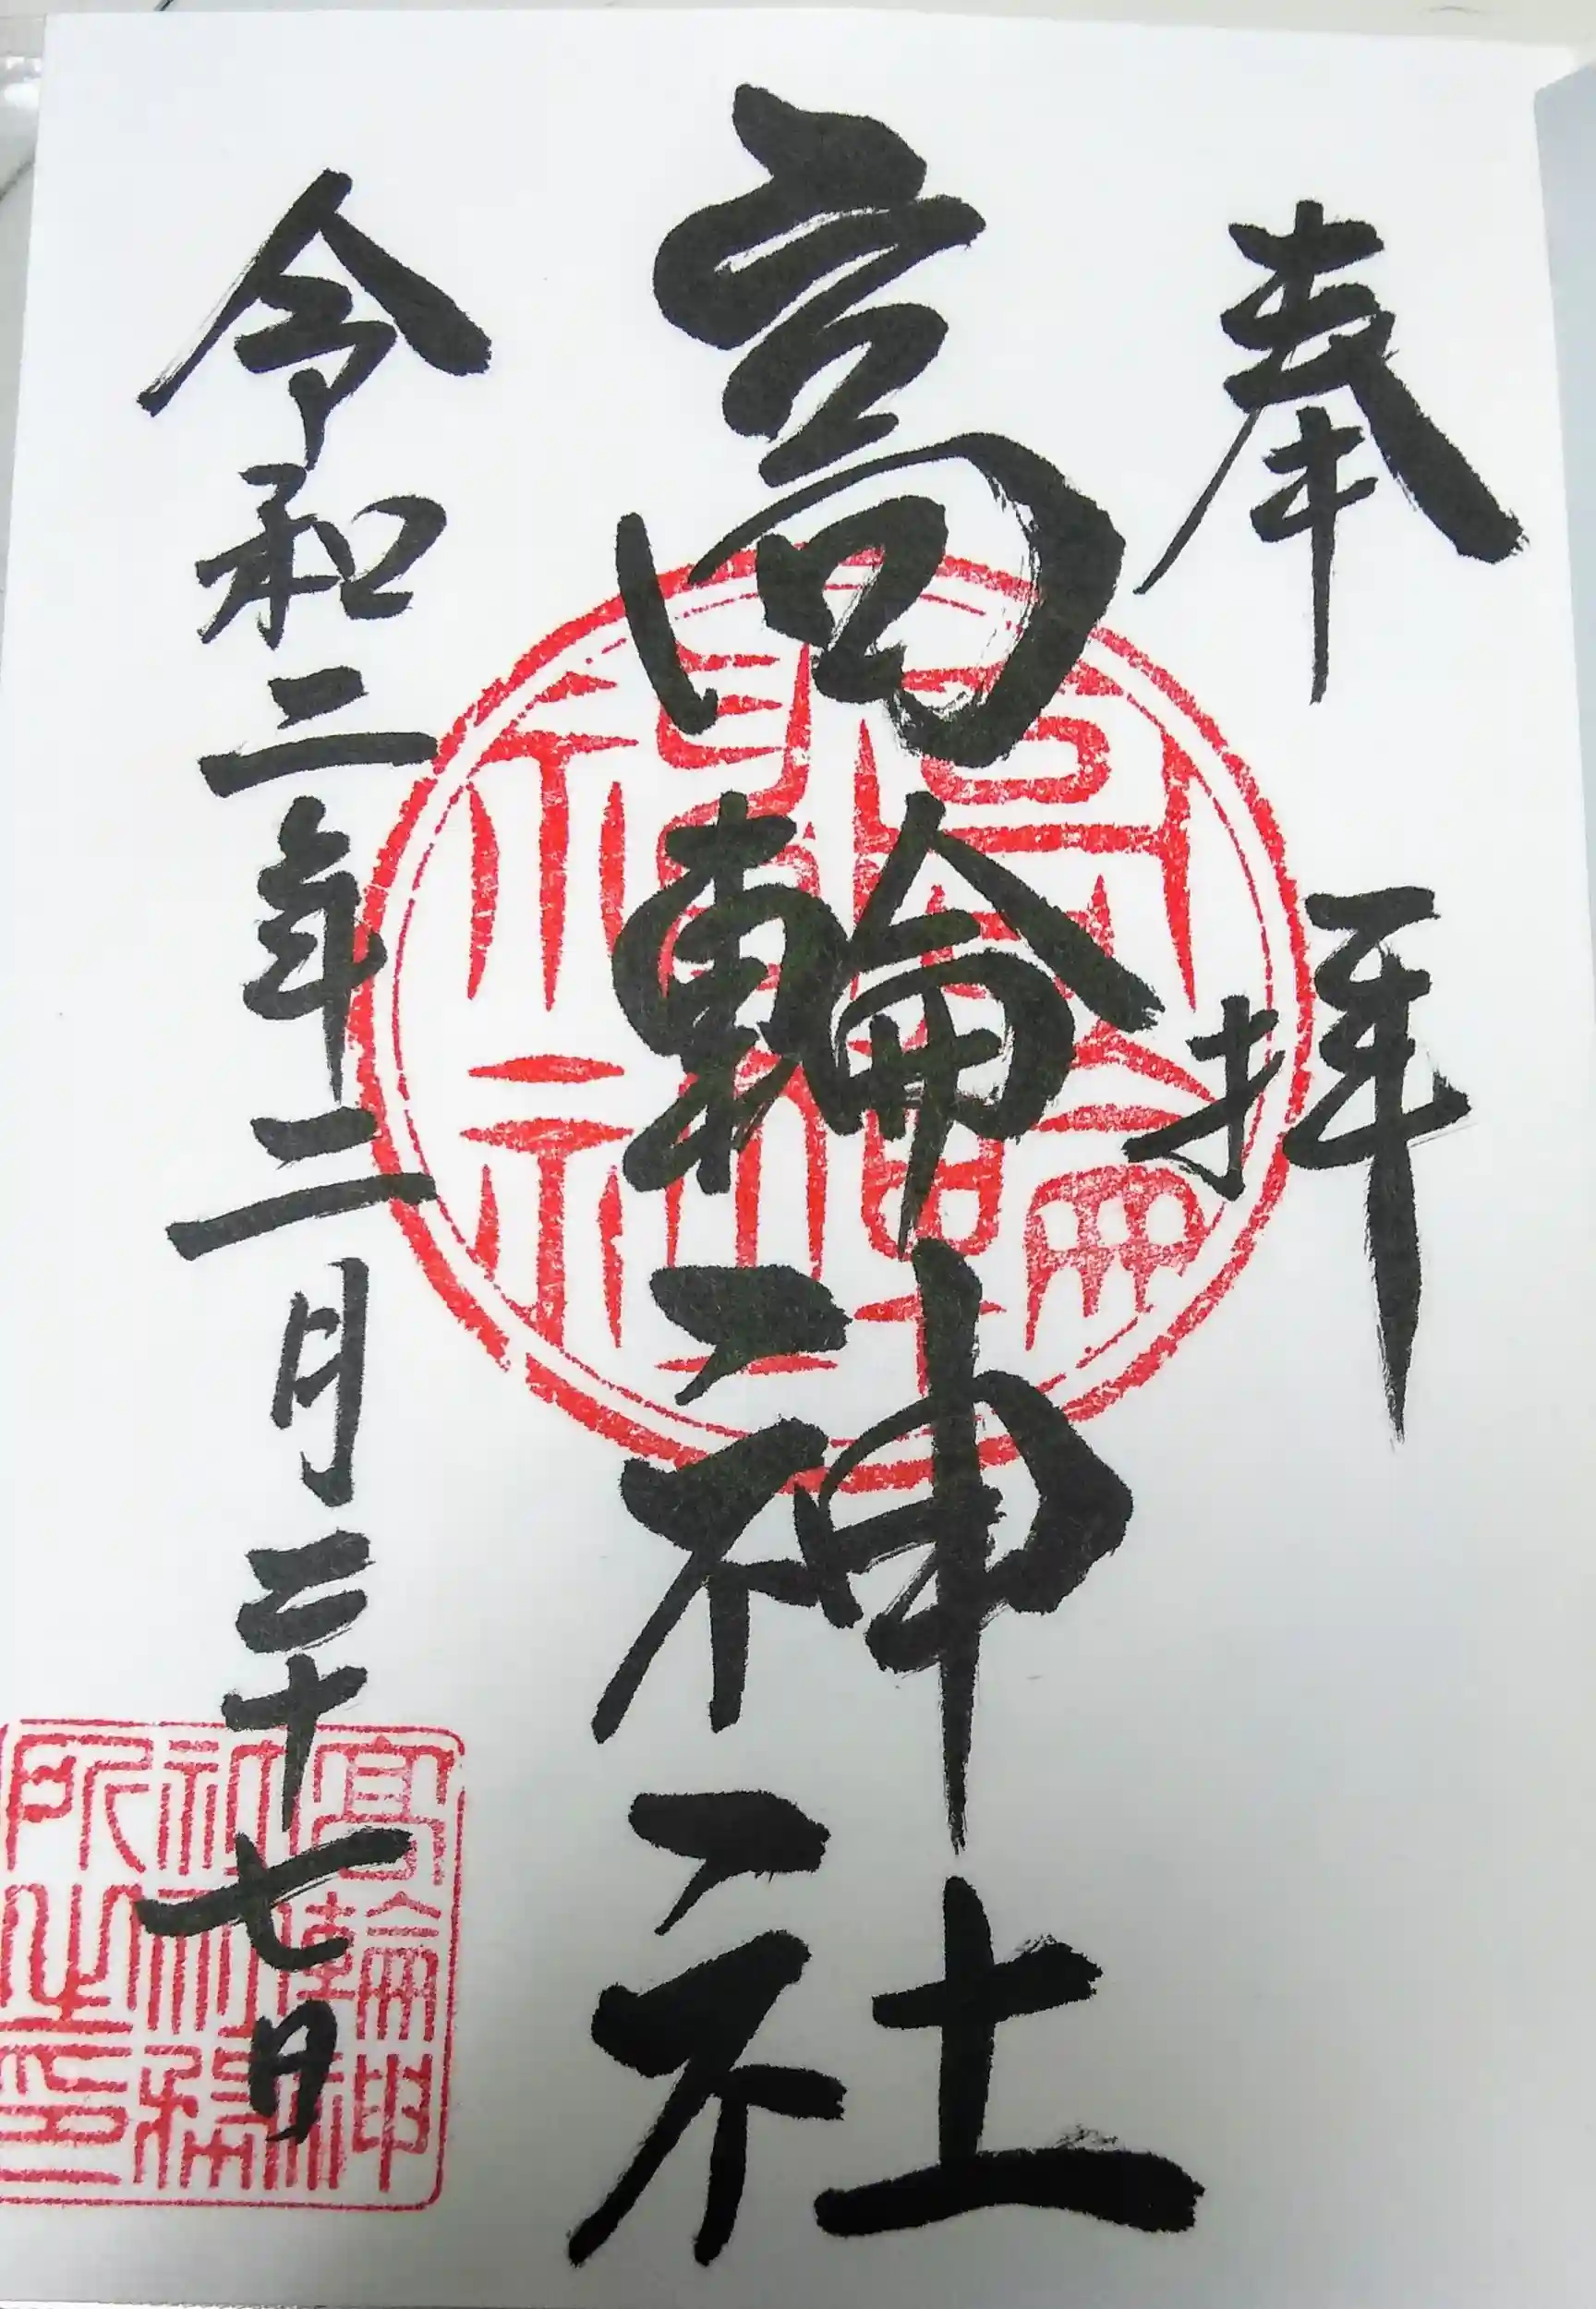 奉拝
高輪神社
令和二年二月二十七日
高輪神社
高輪神社社務所之印